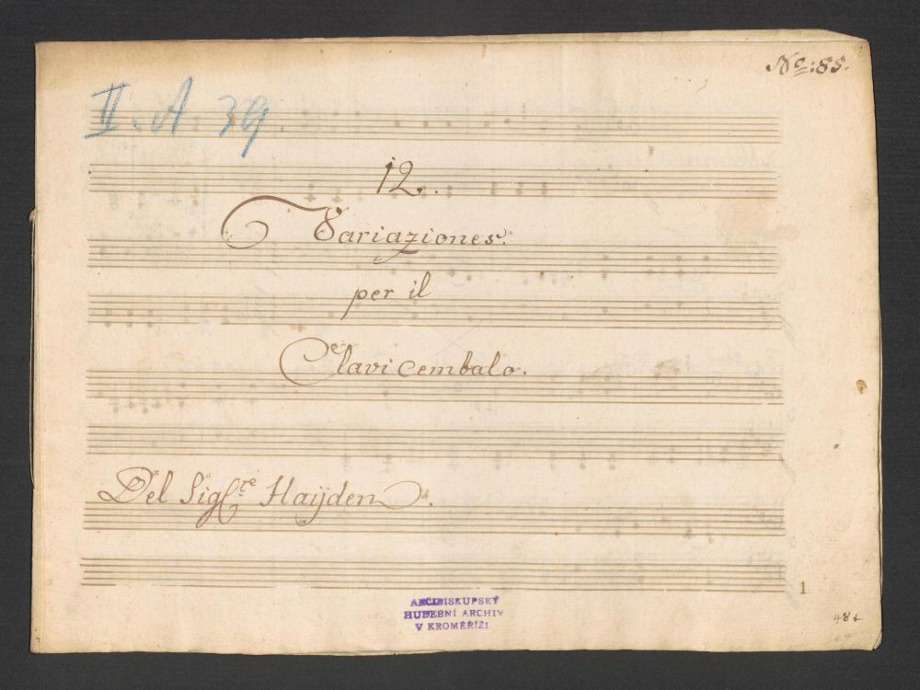 No: 85.
II. A. 39.
12.
Variaziones.
per il
Clavicembalo.
Del Sigre Haÿden.
1
ARCIBISKUPSKÝ
HUDEBNÍ ARCHIV
V KROMĚŘÍŽI.